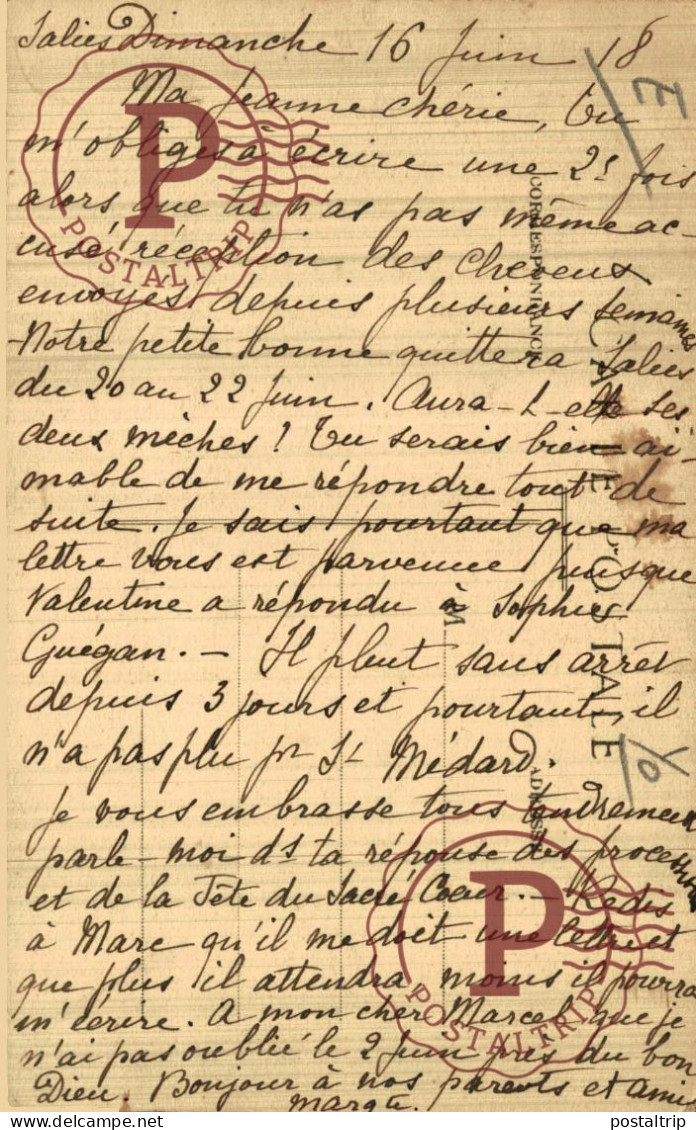 Salies Dimanche 16 Juin 18
Ma Jeanne chérie, Tu
m'obliges à écrire une 2e fois
alors que tu n'as pas même ac-
cusé réception des cheveux
envoyés depuis plusieurs semaines
Notre petite bonne quittera Salies
du 20 au 22 Juin. Aura-t-elle ses
deux mèches! Tu serais bien ai-
mable de me répondre tout de
suite. Je sais pourtant que ma
lettre vous est parvenue puisque
Valentine a répondu à Sophie
Guégan. — Il pleut sans arrêt
depuis 3 jours et pourtant, il
n'a pas plu pr St Médard.
Je vous embrasse tous tendrement
parle-moi ds ta réponse des processions
et de la Fête du Sacré Coeur. — Redis
à Marc qu'il me doit une lettre et
que plus il attendra moins il pourra
m'écrire. A mon cher Marcel que je
n'ai pas oublié le 2 Juin près du bon
Dieu. Bonjour à nos parents et amis
Margte.
CARTE POSTALE
CORRESPONDANCE
ADRESSE
M
P
POSTALTRIP
P
POSTALTRIP
www.delcampe.net
postaltrip